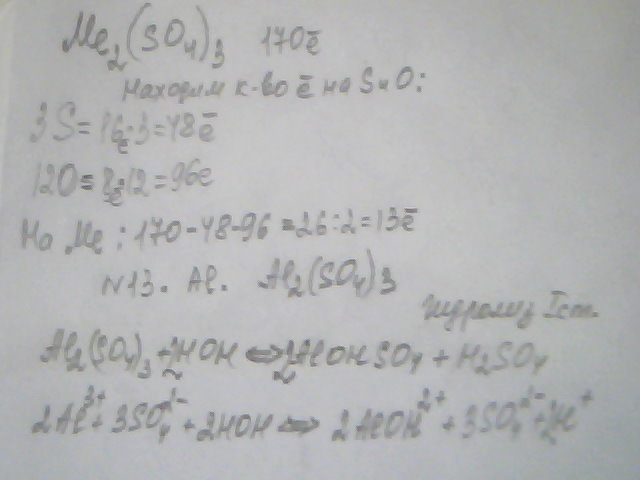 Me₂(SO₄)₃ 170ē
Находим к-во ē на S и O:
3S = 16ē·3 = 48ē
12O = 8ē·12 = 96ē
На Me: 170-48-96 = 26:2 = 13ē
N13. Al. Al₂(SO₄)₃
Гидролиз I ст.
Al₂(SO₄)₃ + 2HOH ⇔ 2AlOHSO₄ + H₂SO₄
2Al³⁺ + 3SO₄²⁻ + 2HOH ⇔ 2AlOH²⁺ + 3SO₄²⁻ + 2H⁺